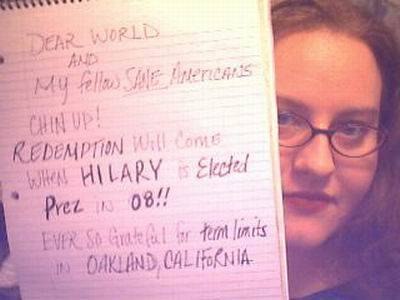 DEAR WORLD
AND
My fellow SANE Americans
CHIN UP!
REDEMPTION Will Come
WHEN HILARY is Elected
Prez in 08!!
EVER SO Grateful for term limits
IN OAKLAND, CALIFORNIA